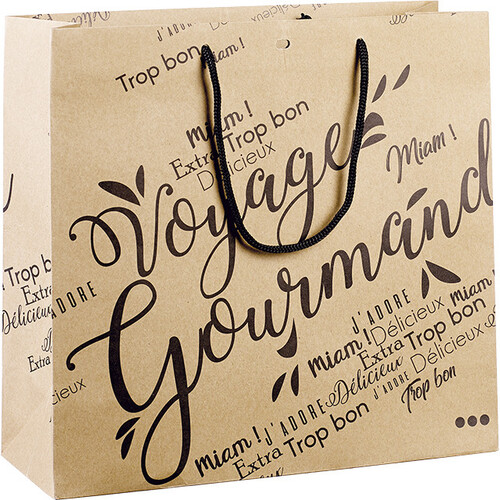 J'ADORE
Délicieux
Miam !
Trop bon
Miam !
Extra Trop bon
Délicieux
Miam !
Voyage
Gourmand
Trop bon
Extra
Délicieux
J'ADORE
Extra
cieux
J'ADORE
Délicieux
Miam !
Extra Trop bon
Miam !
Délicieux
J'ADORE
Délicieux
Trop bon
J'ADORE
Miam !
Extra Trop bon
Délicieux